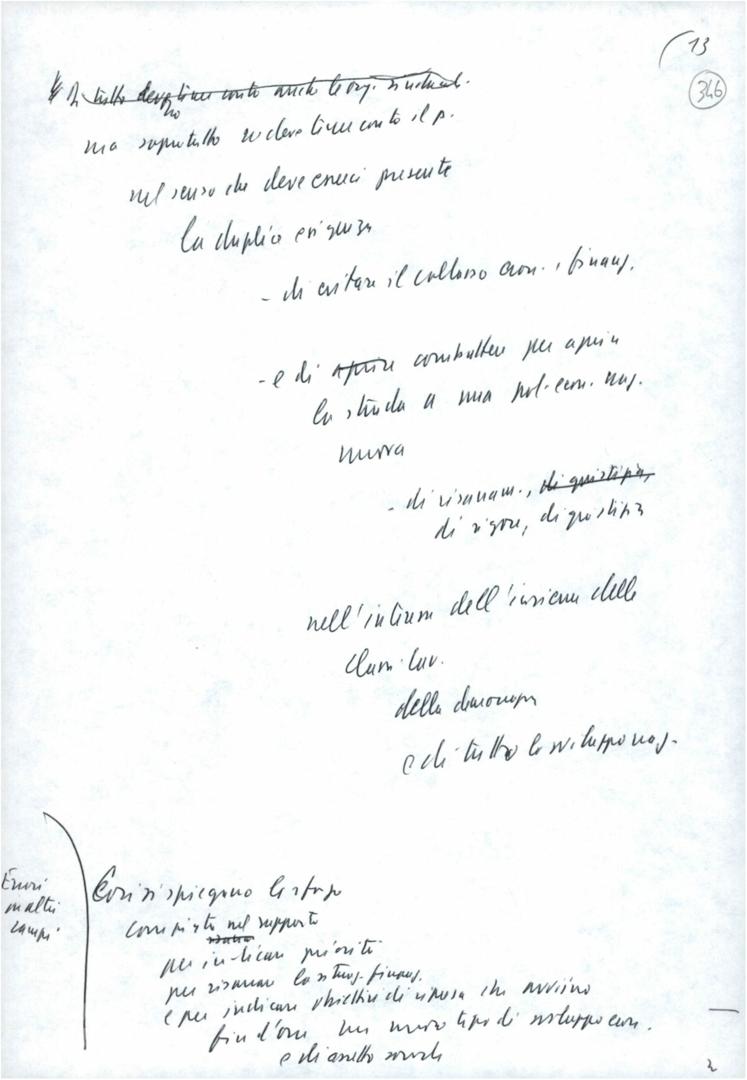 13
346
Di tutto devono tener conto anche le org. sindacal.
ma soprattutto ne deve tener conto il p.
nel senso che deve esserci presente
la duplice esigenza
- di evitare il collasso econ. e finanz.
- e di aprire combattere per aprire
la strada a una pol. econ. naz.
nuova
- di risanam., di giustizia,
di rigore, di giustizia
nell'interesse dell'insieme delle
classi lav.
della democrazia
e di tutto lo sviluppo naz.
Errori
in altri
campi
Così si spiegano
nel rapporto
per indicare priorità
per risanare la situaz. finanz.
e per indicare obiettivi di ripresa che avviino
fin d'ora un nuovo tipo di sviluppo econ.
e di assetto sociale